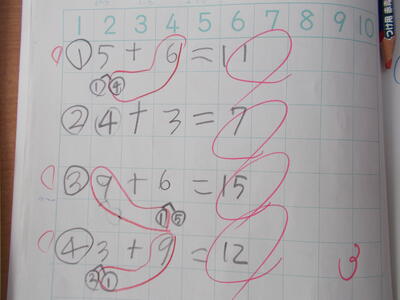 1 2 3 4 5 6 7 8 9 10
つけ用
① 5 + 6 = 11
① ④
② 4 + 3 = 7
③ 9 + 6 = 15
① ⑤
④ 3 + 9 = 12
② ①
3